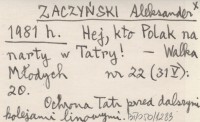 ZACZYŃSKI Aleksander x
1981 h. Hej, kto Polak na
narty w Tatry! – Walka
Młodych nr 22 (31 V):
20.
Ochrona Tatr przed dalszymi
kolejami linowymi.